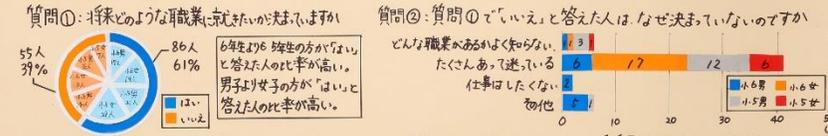 質問①:将来どのような職業に就きたいか決まっていますか
55人
39%
86人
61%
6年生より5年生の方が「はい」
と答えた人の比率が高い。
男子より女子の方が「はい」と
答えた人の比率が高い。
はい
いいえ
質問②:質問①で「いいえ」と答えた人は、なぜ決まっていないのですか
どんな職業があるかよく知らない
1 1 3 1
たくさんあって迷っている
6 17 12 6
仕事はしたくない
2
その他
5 1
小6男 小6女
小5男 小5女
0 10 20 30 40